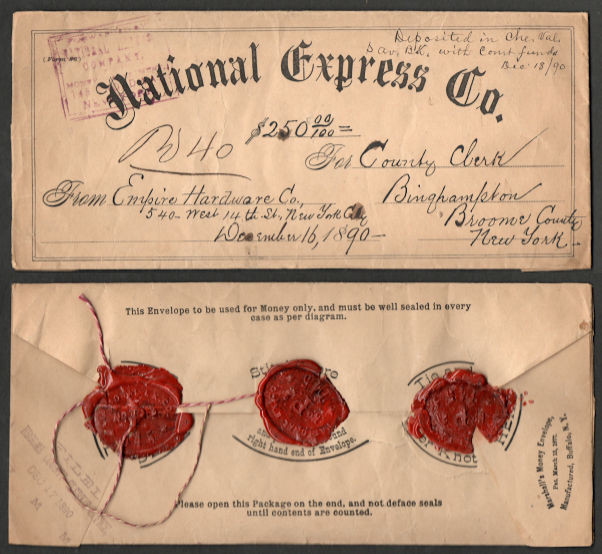 Deposited in Che. Val.
Sav. Bk. with Court funds
Dec 18/90
NATIONAL
COMPANY.
145
National Express Co.
$250 00/100=
40
For County Clerk
From Empire Hardware Co.,
Binghampton
540 West 14th St, New York City
Broome County
December 16, 1890
New York
This Envelope to be used for Money only, and must be well sealed in every
case as per diagram.
right hand end of Envelope.
Knot
HERE
DEC 17 1890
M
Marshall's Money Envelope,
Pat. March 13, 1877.
Manufactured, Buffalo, N. Y.
Please open this Package on the end, and not deface seals
until contents are counted.